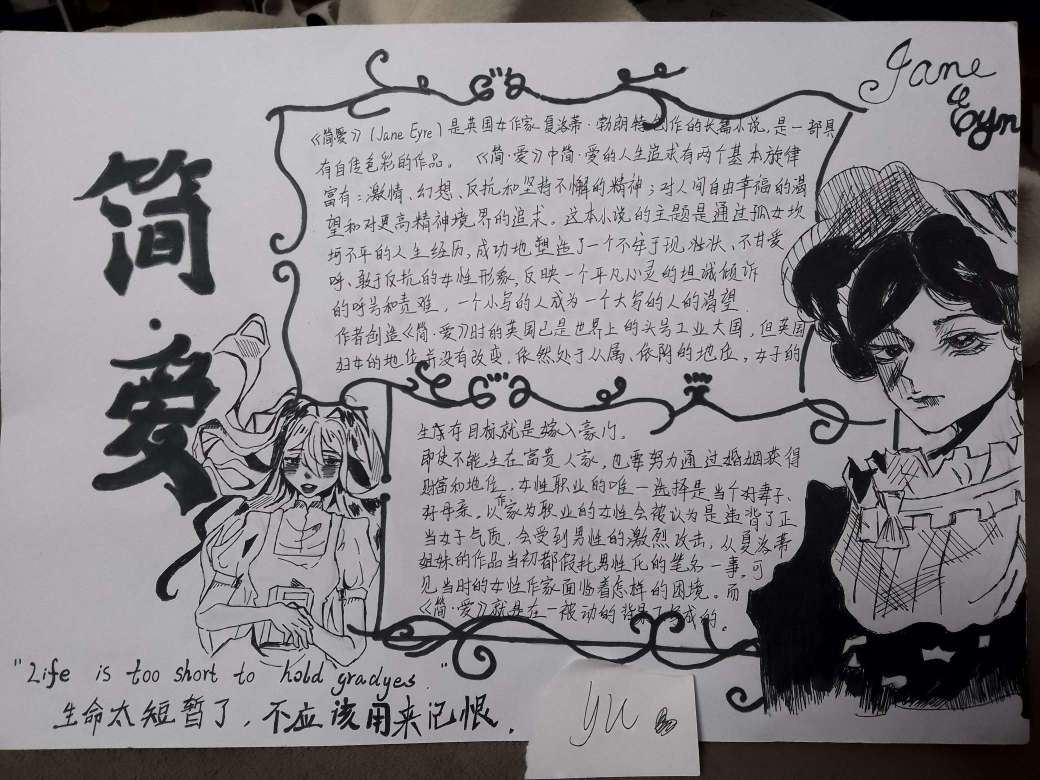 Jane
Eyre
简·爱
《简·爱》(Jane Eyre)是英国女作家夏洛蒂·勃朗特创作的长篇小说,是一部具
有自传色彩的作品。《简·爱》中简·爱的人生追求有两个基本旋律
富有:激情、幻想、反抗和坚持不懈的精神;对人间自由幸福的渴
望和对更高精神境界的追求。这本小说的主题是通过孤女坎
坷不平的人生经历,成功地塑造了一个不安于现状、不甘受
辱、敢于反抗的女性形象,反映一个平凡心灵的坦诚倾诉
的呼号和责难,一个小写的人成为一个大写的人的渴望.
作者创造《简·爱》时的英国已是世界上的头号工业大国,但英国
妇女的地位并没有改变,依然处于从属、依附的地位,女子的
生存目标就是嫁入豪门。
即使不能生在富贵人家,也要努力通过婚姻获得
财富和地位,女性职业的唯一选择是当个好妻子、
好母亲。以作家为职业的女性会被认为是违背了正
当女子气质,会受到男性的激烈攻击,从夏洛蒂
姐妹的作品当初都假托男性化的笔名一事,可
见当时的女性作家面临着怎样的困境。而
《简·爱》就是在一被动的背景下写成的。
"Life is too short to hold gradyes."
生命太短暂了,不应该用来记恨.
yu